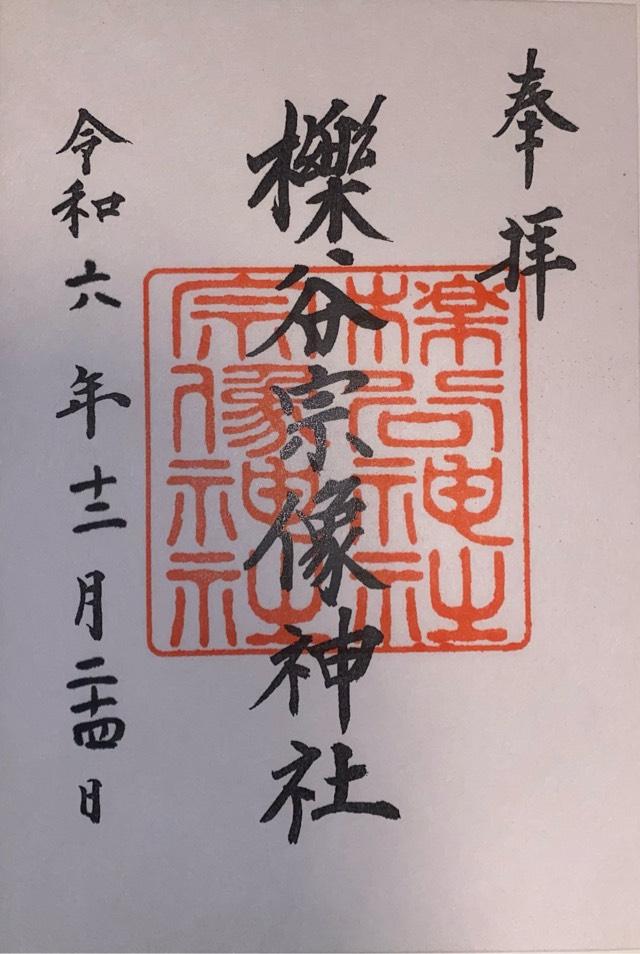 奉拝
櫟谷宗像神社
令和六年十二月二十四日
櫟谷神社
宗像神社